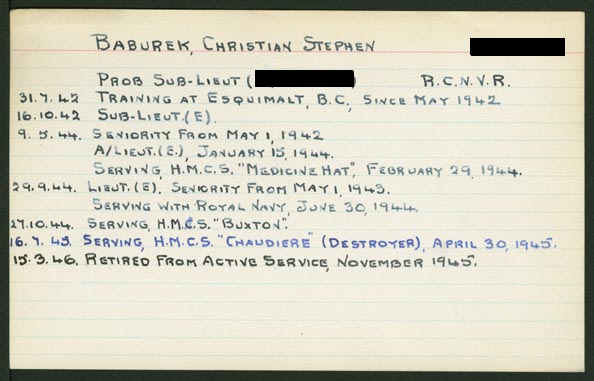 BABUREK, CHRISTIAN STEPHEN
PROB SUB-LIEUT ( ) R.C.N.V.R.
31.7.42 TRAINING AT ESQUIMALT, B.C., SINCE MAY 1942
16.10.42 SUB-LIEUT.(E).
9.5.44. SENIORITY FROM MAY 1, 1942
A/LIEUT.(E.), JANUARY 15, 1944.
SERVING, H.M.C.S. "MEDICINE HAT", FEBRUARY 29, 1944.
29.9.44. LIEUT.(E), SENIORITY FROM MAY 1, 1943.
SERVING WITH ROYAL NAVY, JUNE 30, 1944.
27.10.44. SERVING, H.M.C.S. "BUXTON".
16.7.45. SERVING, H.M.C.S. "CHAUDIERE" (DESTROYER), APRIL 30, 1945.
15.3.46. RETIRED FROM ACTIVE SERVICE, NOVEMBER 1945.